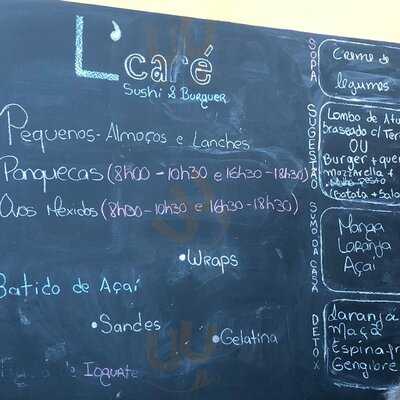 L'café
Sushi & Burguer
Pequenos-Almoços e Lanches
Panquecas (8h00 - 10h30 e 16h30 - 18h30)
Ovos Mexidos (8h30 - 10h30 e 16h30 - 18h30)
• Wraps
Batido de Açaí
• Sandes
• Gelatina
Iogurte
SOPA
Creme de
legumes
SUGESTÃO
Lombo de Atu
braseado c/
OU
Burger + quei
mozzarella +
pesto
Batata + Sala
SUMO DA CASA
Manga
Laranja
Açaí
DETOX
Laranja
Maçã
Espinafr
Gengibre